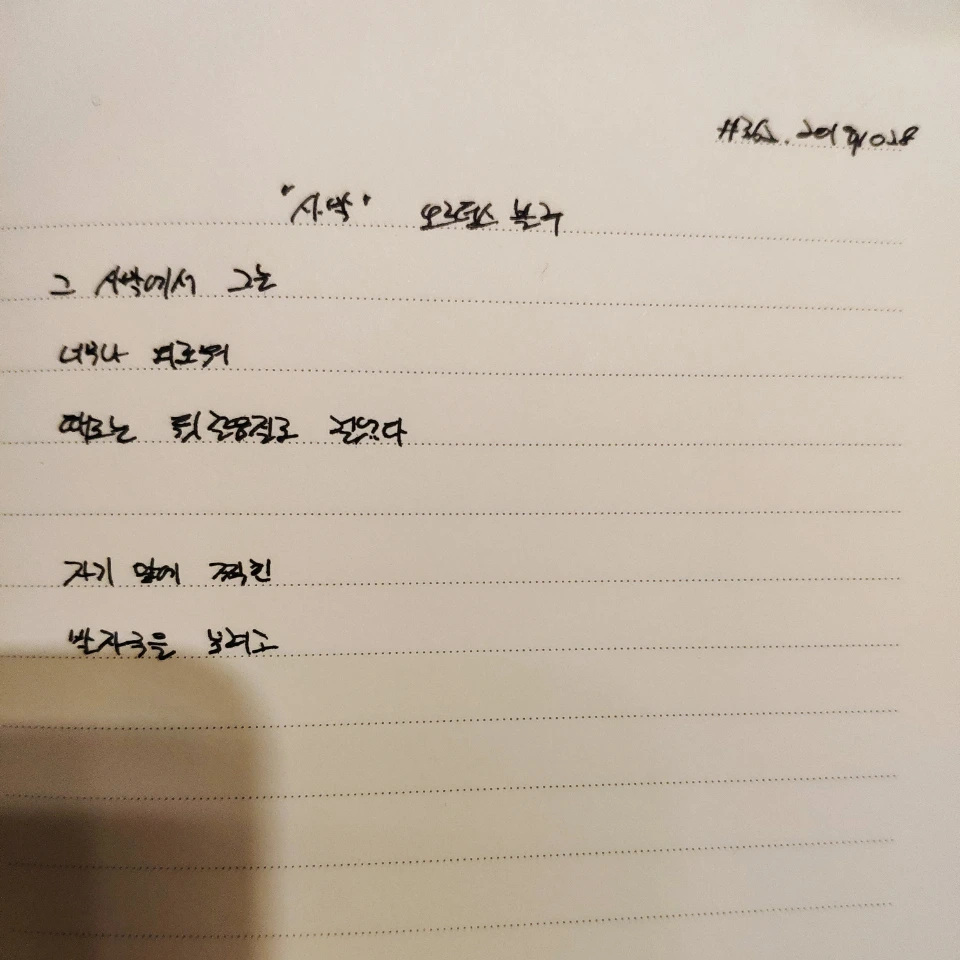 #362. 20191028
"사막" 오르텅스 블루
그 사막에서 그는
너무나 외로워
때로는 뒷걸음질로 걸었다
자기 앞에 찍힌
발자국을 보려고